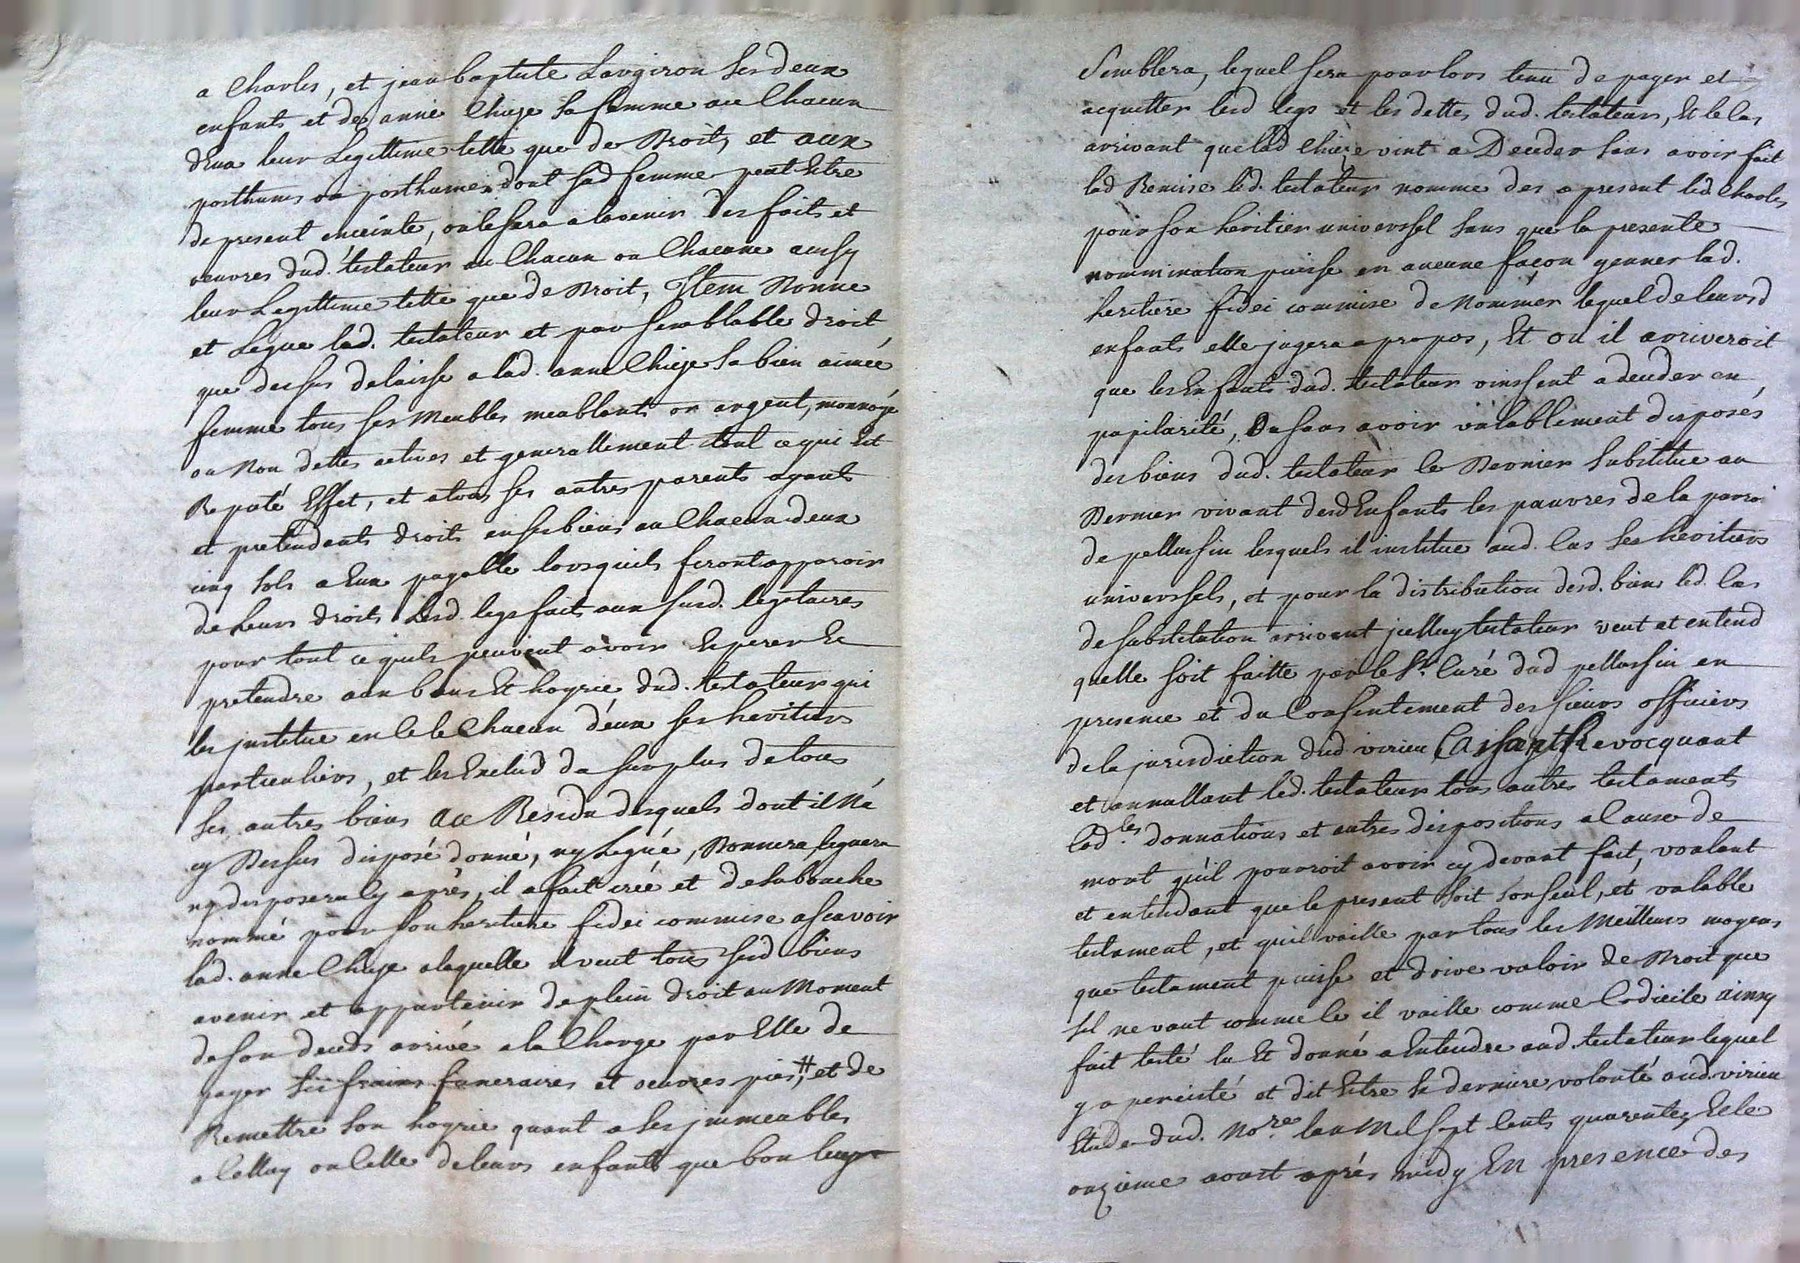 a Charles, et jean baptiste Lavgiron ses deux
enfants et de anne Chieze sa femme au Chacun
d'Eux leur Legittime telle que de Droit, et aux
posthumes ou posthumes dont sad femme peut Estre
de present enceinte, ou le sera a lavenir des faits et
oeuvres dud. testateur au Chacun ou Chacune aussy
leur Legittime telle que de Droit, Item Donne
et Legue led. testateur et par semblable droit
que dessus delaisse a lad. anne Chieze sa bien aimée
femme tous ses Meubles meublants or argent, monnoyé
ou Non dettes actives et generallement tout ce qui Est
Reputé Effet, et a tous ses autres parents ayants
et pretendants droits en ses biens au Chacun deux
cinq sols a Eux payable lorsquils feront apparoir
de Leurs droits Lesd. legs faits aux susd. legataires
pour tout ce quils peuvent avoir Esperer Et
pretendre aux biens Et hoyrie dud. testateur qui
les jnstitue en Ce le Chacun d'eux ses heritiers
particuliers, et les Exclud du surplus de tous
ses autres biens Au Residu desquels dont il Na
cy Dessus disposé donné, ny Legué, Donnera, leguera
ny disposera Cy après, il a fait créé et de sa bouche
nommé pour son heritiere fidei commise ascavoir
lad. anne Chieze a laquelle il veut tous sesd biens
avenir et appartenir de plein droit au Moment
de son deceds arrivé a la Charge par Elle de
payer ses frais funeraires et oeuvres pies, # et de
Remettre son hoyrie quant a ses jmmeubles
a Celluy ou Celle de leurs enfants que bon luy
Semblera, lequel sera pour lors tenu de payer et
acquitter lesd legs et les dettes dud. testateur, Et le Cas
arrivant que lad Chieze vint a Deceder sans avoir fait
lad Remise led. testateur nomme des a present led. Charles
pour son heritier universsel sans que la presente
nommination puisse en aucune façon genner lad.
heritiere fidei commise de Nommer lequel de leursd
enfants elle jugera apropos, Et ou il arriveroit
que les Enfants dud. testateur vinssent a deceder en
pupilarité, Ou sans avoir valablement disposés
des biens dud. testateur le Dernier Substitue au
Dernier vivant desd Enfants les pauvres de la paroi
de pellussin lesquels il institue aud. Cas ses heritiers
universsels, et pour la distribution desd. biens led. Cas
de substitution arrivant jcelluy testateur veut et entend
quelle soit faitte par le Sr. Curé dud pellussin en
presence et du Consentement des sieurs officiers
de la jurisdiction dud virieu Cassant Revocquant
et annullant led. testateur tous autres testaments
Codles. donnations et autres dispositions a Cause de
mort quil pourroit avoir cy devant fait, voulant
et entendant que le present soit son seul, et valable
testament, et quil vaille par tous les Meilleurs moyens
que testament puisse et doive valoir de Droit que
sil ne vaut comme le il vaille comme Codicile ainsy
fait testé lu Et donné a Entendre aud. testateur lequel
y a percisté et dit Estre sa derniere volonté aud. virieu
Etude dud. Nore. Lan Mil sept Cents quarente, Et le
onzieme aoust aprés midy En presence des